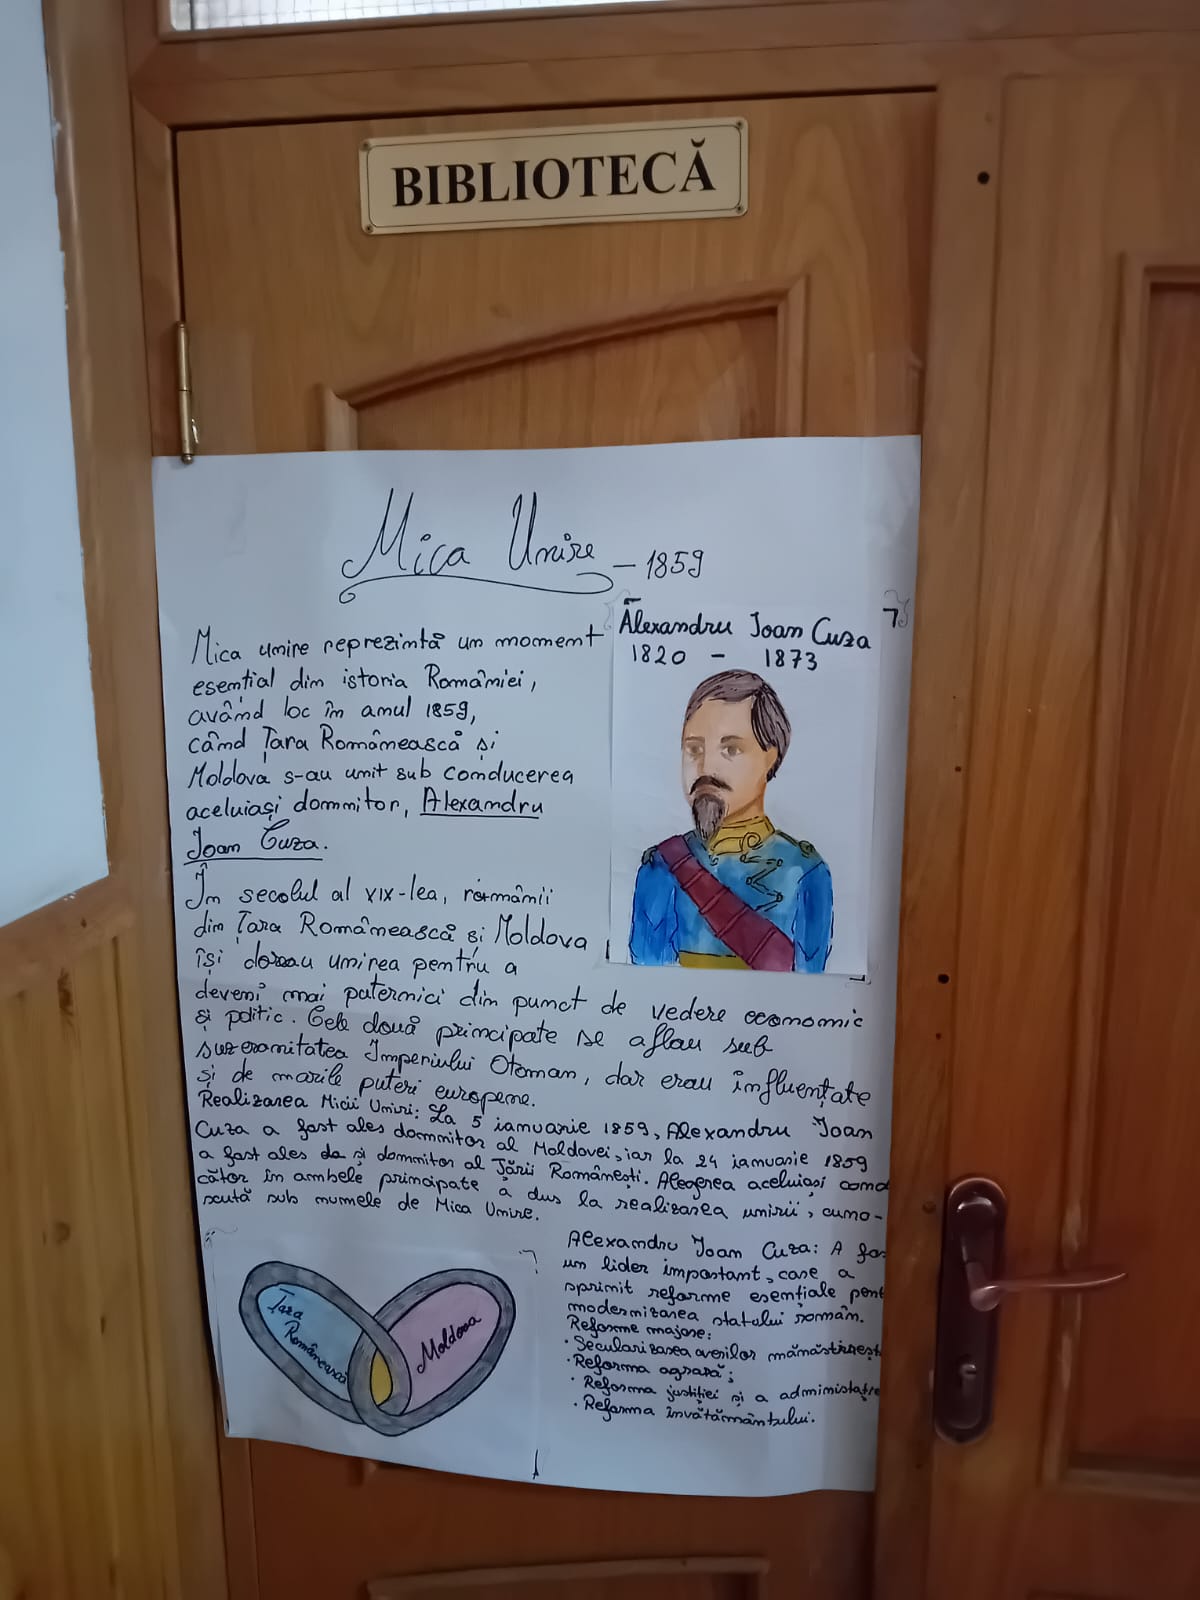 BIBLIOTECĂ
Mica Unire – 1859
Alexandru Ioan Cuza
1820 – 1873
Mica unire reprezintă un moment
esențial din istoria României,
având loc în anul 1859,
când Țara Românească și
Moldova s-au unit sub conducerea
aceluiași domnitor, Alexandru
Ioan Cuza.
În secolul al XIX-lea, românii
din Țara Românească și Moldova
își doreau unirea pentru a
deveni mai puternici din punct de vedere economic
și politic. Cele două principate se aflau sub
suzeranitatea Imperiului Otoman, dar erau influențate
și de marile puteri europene.
Realizarea Micii Uniri: La 5 ianuarie 1859, Alexandru Ioan
Cuza a fost ales domnitor al Moldovei, iar la 24 ianuarie 1859
a fost ales și domnitor al Țării Românești. Alegerea aceluiași cond
cător în ambele principate a dus la realizarea unirii, cuno-
scută sub numele de Mica Unire.
Alexandru Ioan Cuza: A fo
un lider important, care a
sprinit reforme esențiale pent
modernizarea statului român.
Reforme majore:
· Secularizarea averilor mănăstirești
· Reforma agrară;
· Reforma justiției și a administrație
· Reforma învătământului.
Țara
Românească
Moldova